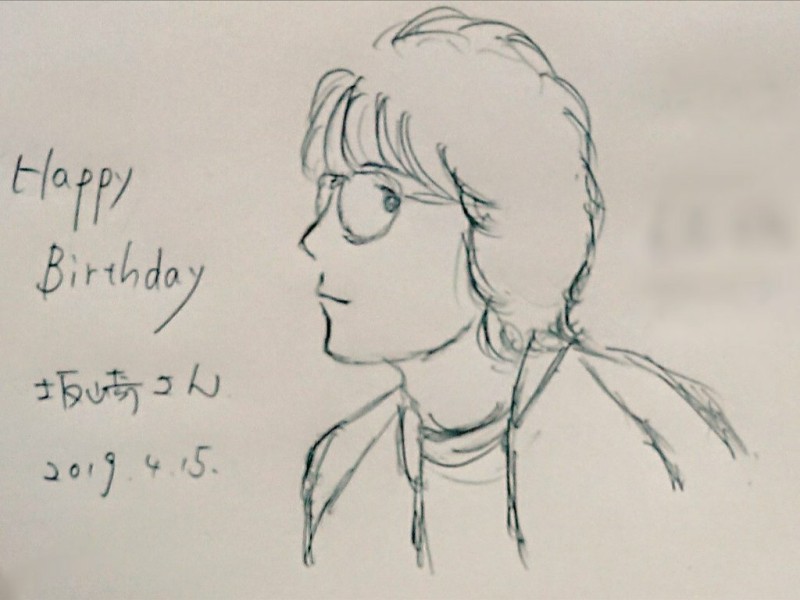 Happy
Birthday
坂崎さん
2019.4.15.